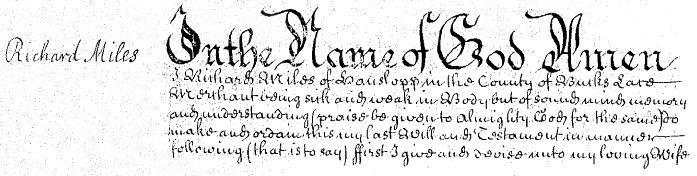 Richard Miles
In the Name of God Amen
I Richard Miles of Hanslopp in the County of Bucks Lace
Merchant being sick and weak in Body but of sound mind memory
and understanding (praise be given to Almighty God for the same) do
make and ordain this my last Will and Testament in manner
following (that is to say) ffirst I give and devise unto my loving Wife